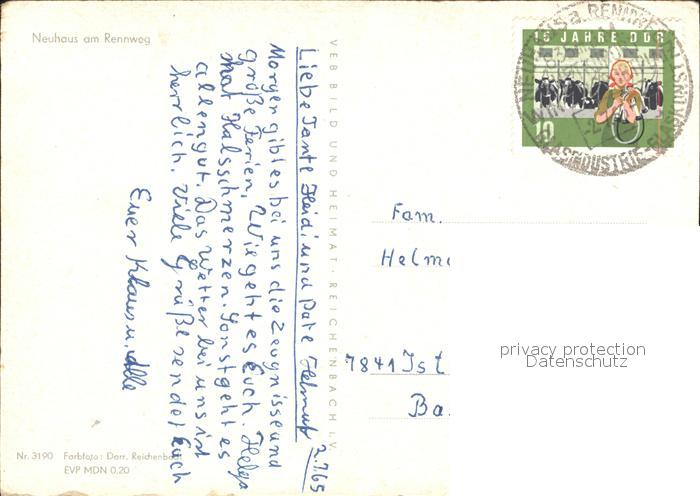 Neuhaus am Rennweg
Liebe Tante Heidi und Pate Helmut 2.7.65
Morgen gibt es bei uns die Zeugnisse und
große Ferien. Wie geht es Euch. Helga
hat Halsschmerzen. Sonst geht es
allen gut. Das Wetter bei uns ist
herrlich. Viele Grüße sendet Euch
Euer Klaus u. Alle
Nr. 3190 Farbfoto: Darr, Reichenbach
EVP MDN 0,20
VEB BILD UND HEIMAT · REICHENBACH I. V.
15 JAHRE DDR
10
NEUHAUS a. RENNWEG
GLASINDUSTRIE-GLASKUNST
Fam.
Helm
7841 Ist
Ba
privacy protection
Datenschutz